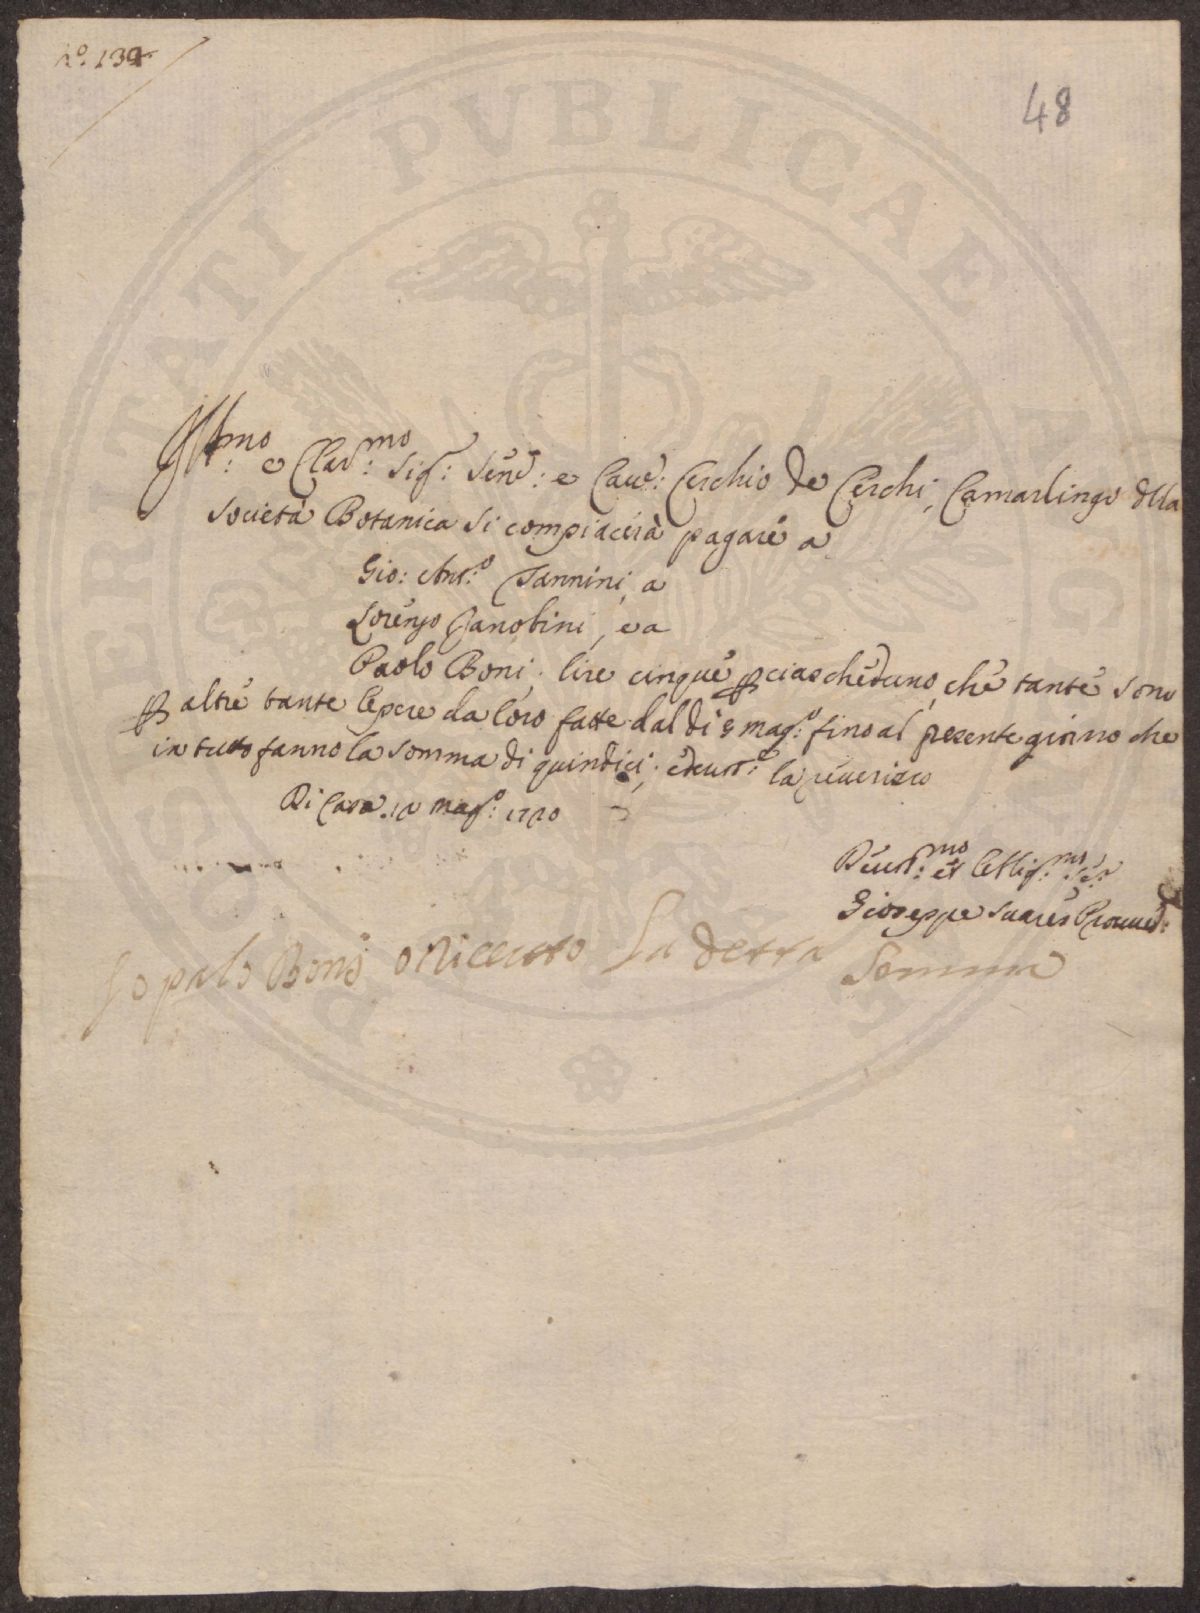 N.° 139
48
Ill:mo e Clar:mo Sig: Sen: e Cav: Cerchio de Cerchi, Camarlingo della
Società Botanica si compiacerà pagare a
Gio: Ant:o Nannini, a
Lorenzo Zanobini, e a
Paolo Boni, lire cinque p ciascheduno, che tante sono
p altre tante l'opere da loro fatte dal dì 5 mag:o fino al presente giorno che
in tutto fanno la somma di quindici; e la reverisco
Di Casa 10 mag:o 1720
Deuot:mo et Obblig:mo
Gioseppe Suares Proued:
Io palo Boni o Riceuto la detta Somma
PVBLICAE